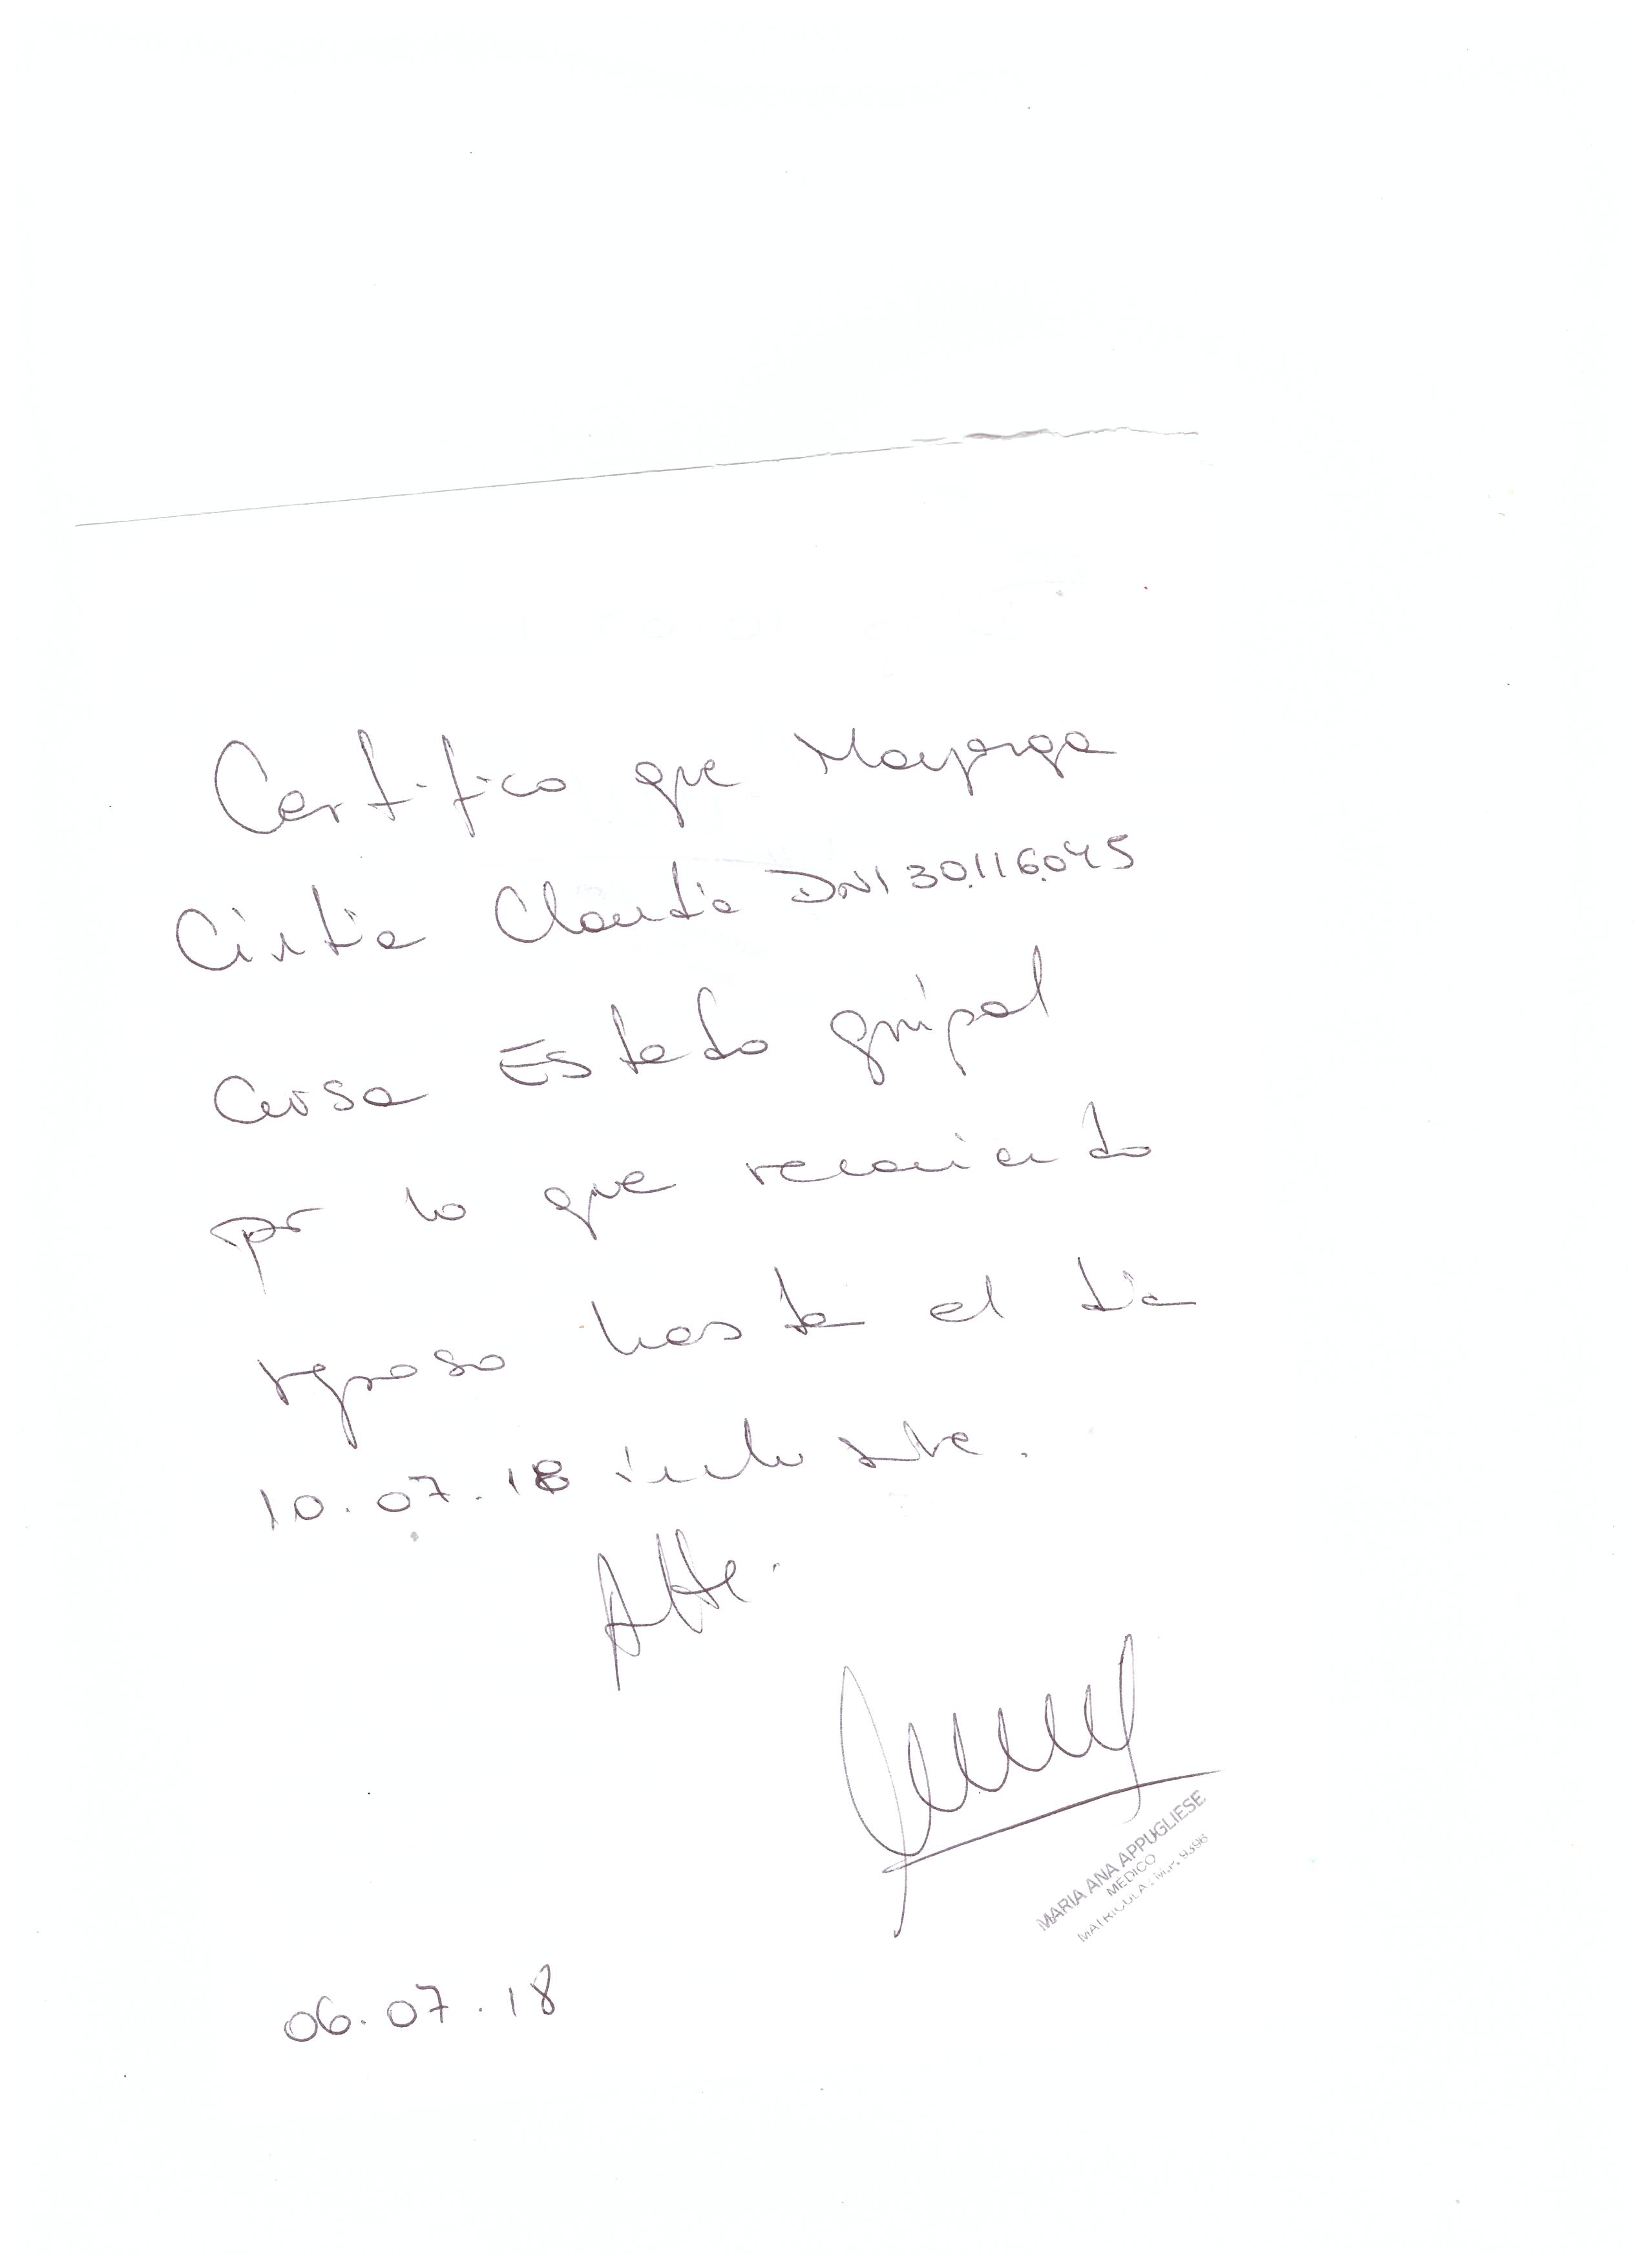 Certifico que Mayorga
Cintia Claudia DNI 30.116.045
Cursa Estado gripal
por lo que recomiendo
reposo hasta el día
10.07.18 inclusive.
Atte.
MARIA ANA APPUGLIESE
MEDICO
MATRICULA: M.P. 9396
06.07.18